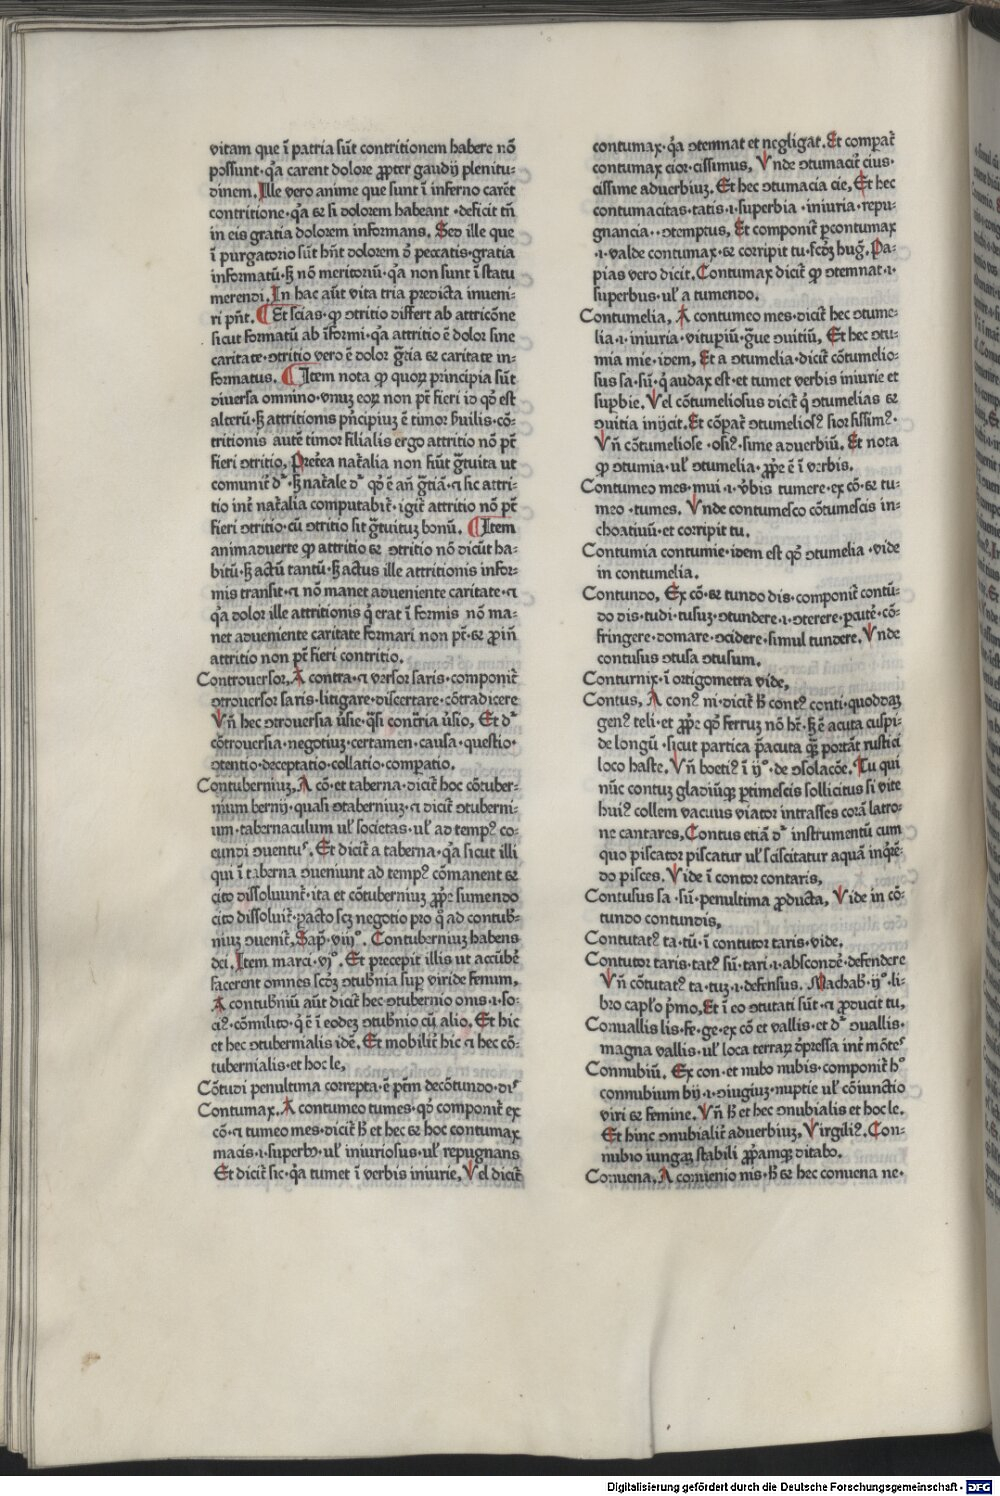 vitam que ĩ patria sũt contritionem habere nõ
possunt·q̃a carent dolore ꝓpter gaudij plenitu⸗
dinem. Ille vero anime que sunt ĩ inferno carẽt
contritione·q̃a ⁊ si dolorem habeant ·deficit tñ
in eis gratia dolorem informans. Sed ille que
ĩ purgatorio sũt hñt dolorem ð peccatis·gratia
informatũ·ꝫ nõ meritoriũ·q̃a non sunt ĩ statu
merendi. In hac aũt vita tria predicta inueni⸗
ri pñt. ¶ Et scias·ꝙ ↄtritio differt ab attricõne
sicut formatũ ab ĩformi·q̃a attritio ẽ dolor sine
caritate·ↄtritio vero ẽ dolor gr̃ia ⁊ caritate in⸗
formatus. ¶ Item nota ꝙ quoꝝ principia sũt
diuersa omnino·vnuꝫ eoꝝ non pt̃ fieri id qð est
alterũ·ꝫ attritionis pñcipiuꝫ ẽ timor ẜuilis·cõ⸗
tritionis autẽ timor filialis ergo attritio nõ pt̃
fieri ↄtritio. Pret̃ea nat̃alia non fiũt gr̃tuita ut
comunit̃ dr̃·ꝫ nat̃ale dr̃ qð ẽ añ gr̃tiã·⁊ sic attri⸗
tio int̃ nat̃alia computabit̃·igit̃ attritio nõ pt̃
fieri ↄtritio·cũ ↄtritio sit gr̃tuituꝫ bonũ. ¶ Item
animaduerte ꝙ attritio ⁊ ↄtritio nõ dicũt ha⸗
bitũ·ꝫ actũ tantũ·ꝫ actus ille attritionis infor⸗
mis transit·⁊ nõ manet adueniente caritate·⁊
q̃a dolor ille attritionis q̃ erat ĩ formis nõ ma⸗
net adueniente caritate formari non pt̃·⁊ ꝓiñ
attritio non pt̃ fieri contritio.
Controuersor. A contra·⁊ versor saris·componit̃
ↄtrouersor saris·litigare·discertare·cõtradicere
Vñ hec ↄtrouersia ũsie·q̃si cont̃ria ũsio, Et dr̃
cõtrouersia·negotiuꝫ·certamen·causa·questio·
ↄtentio·deceptatio·collatio·compatio.
Contuberniuꝫ, A cõ·et taberna·dicit̃ hoc cõtuber⸗
nium bernij·quasi ↄtaberniuꝫ·⁊ dicit̃ ↄtuberni⸗
um·tabernaculum ul̃ societas·ul̃ ad tempꝰ co⸗
eundi ↄuentuˢ. Et dicit̃ a taberna·q̃a sicut illi
qui ĩ taberna ↄueniunt ad tempꝰ cõmanent ⁊
cito dissoluunt̃·ita et cõtuberniuꝫ ꝓp̃e sumendo
cito dissoluit̃·pacto scꝫ negotio pro q̃ ad contub̃⸗
niuꝫ ↄuenit̃, Sap̃·viijº. Contuberniuꝫ habens
dei. Item marci·vjº. Et precepit illis ut accũbẽ
facerent omnes scðꝫ ↄtub̃nia sup viride fenum,
A contub̃niũ aũt dicit̃ hec ↄtubernio onis·ı·so⸗
ciꝰ·cõmilito·q̃ ẽ ĩ eodeꝫ ↄtub̃nio cũ alio. Et hic
et hec ↄtubernialis idẽ. Et mobilit̃ hic ⁊ hec cõ⸗
tubernialis·et hoc le,
Cõtudi penultima correpta·ẽ pt̃m decõtundo·diˢ
Contumax. A contumeo tumes·qð componit̃ ex
cõ·⁊ tumeo mes·dicit̃ ħ et hec ⁊ hoc contumax
macis·ı·superbꝰ·ul̃ iniuriosus·ul̃ repugnans
Et dicit̃ sic·q̃a tumet ĩ verbis iniurie, Vel dicit̃
contumax·q̃a ↄtemnat et negligat. Et compat̃
contumax cior·cissimus, Vnde ↄtumacit̃ cius·
cissime aduerbiuꝫ. Et hec ↄtumacia cie, Et hec
contumacitas·tatis·ı·superbia ·iniuria·repu⸗
gnancia··ↄtemptus, Et componit̃ pcontumax
·ı·valde contumax·⁊ corripit tu·scðꝫ hug̃. Pa⸗
pias vero dicit. Contumax dicit̃ ꝙ ↄtemnat·ı·
superbus·ul̃ a tumendo.
Contumelia, A contumeo mes·dicit̃ hec ↄtume⸗
lia·ı·iniuria·vitupiũ·gr̃ue ↄuitiũ, Et hec ↄtu⸗
mia mie·idem, Et a ↄtumelia·dicit̃ cõtumelio⸗
sus sa·sũ·q̃ audax est·et tumet verbis iniurie et
supbie. Vel cõtumeliosus dicit̃ q̃ ↄtumelias ⁊
ↄuitia inijcit. Et cõpat̃ ↄtumeliosꝰ sior sissimꝰ·
Vñ cõtumeliose ·osiꝰ·sime aduerbiũ. Et nota
ꝙ ↄtumia·ul̃ ↄtumelia·ꝓp̃e ẽ ĩ verbis.
Contumeo mes·mui·ı·v̾bis tumere·ex cõ·⁊ tu⸗
meo·tumes. Vnde contumesco cõtumescis in⸗
choatiuũ·et corripit tu.
Contumia contumie·idem est qð ↄtumelia ·vide
in contumelia.
Contundo, Ex cõ·⁊ tundo dis·componit̃ contũ⸗
do dis·tudi·tusuꝫ·ↄtundere·ı·ↄterere·pcutẽ·cõ⸗
fringere·domare·ↄcidere·simul tundere. Vnde
contusus ↄtusa ↄtusum.
Conturnix·ĩ ortigometra vide,
Contus, A conꝰ ni·dicit̃ ħ contꝰ conti·quoddaꝫ
genꝰ teli·et ꝓp̃e qð ferruꝫ nõ hꝫ·ꝫ ẽ acuta cuspi⸗
de longũ ·sicut partica p̃acuta q̃ꝫ portãt rustici
loco haste. Vñ boetiꝰ ĩ ijº·de ↄsolacõe. Tu qui
nũc contuꝫ gladiũqꝫ ptimescis sollicitus si vite
huiꝰ collem vacuus viator intrasses corã latro⸗
ne cantares, Contus etiã dr̃ instrumentũ cum
quo piscator piscatur ul̃ sciscitatur aquã inq̃rẽ⸗
do pisces. Vide ĩ contor contaris,
Contusus sa·sũ·penultima ꝓducta, Vide in cõ⸗
tundo contundis,
Contutatꝰ ta·tũ·ĩ contutor taris·vide,
Contutor taris·tatꝰ sũ·tari·ı·abscondẽ·defendere
Vñ cõtutatꝰ ta·tuꝫ·ı·defensus. Machab̃·ijº·li⸗
bro capl̃o p̃mo, Et ĩ eo ↄtutati sũt·⁊ ꝓducit tu,
Conuallis lis·fe·ge·ex cõ et vallis·et dr̃ ↄuallis·
magna vallis·ul̃ loca terraꝝ dp̃ressa int̃ mõteˢ
Connubiũ. Ex con·et nubo nubis·componit̃ hº
connubium bij·ı·ↄiugiuꝫ·nuptie ul̃ cõiunctio
viri ⁊ femine. Vñ ħ et hec ↄnubialis et hoc le.
Et hinc ↄnubialit̃ aduerbiuꝫ. Virgiliꝰ. Con⸗
nubio iungaꝫ stabili ꝓp̃amqꝫ dicabo.
Conuena, A conuenio nis·ħ ⁊ hec conuena ne·
Digitalisierung gefördert durch die Deutsche Forschungsgemeinschaft - DFG